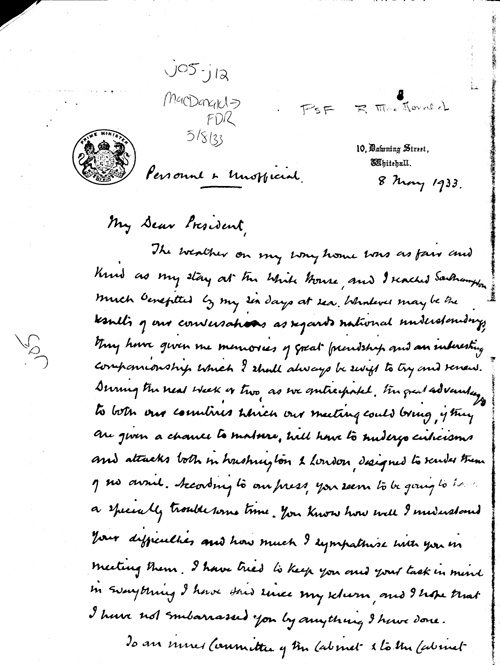 j05-j12
MacDonald →
FDR
5/8/33
PSF
PRIME MINISTER
10, Downing Street,
Whitehall.
8 May 1933.
Personal & Unofficial.
My Dear President,
The weather on my way home was as fair and
kind as my stay at the White House, and I reached Southampton
much benefitted by my six days at sea. Whatever may be the
results of our conversations as regards national understandings,
they have given me memories of great friendship and an interesting
companionship which I shall always be swift to try and renew.
During the next week or two, as we anticipated, the great advantages
to both our countries which our meeting could bring, if they
are given a chance to mature, will have to undergo criticisms
and attacks both in Washington & London, designed to render them
of no avail. According to our press, you seem to be going to
a specially troublesome time. You know how well I understand
your difficulties and how much I sympathise with you in
meeting them. I have tried to keep you and your task in mind
in everything I have said since my return, and I hope that
I have not embarrassed you by anything I have done.
To an inner Committee of the Cabinet & to the Cabinet
j05